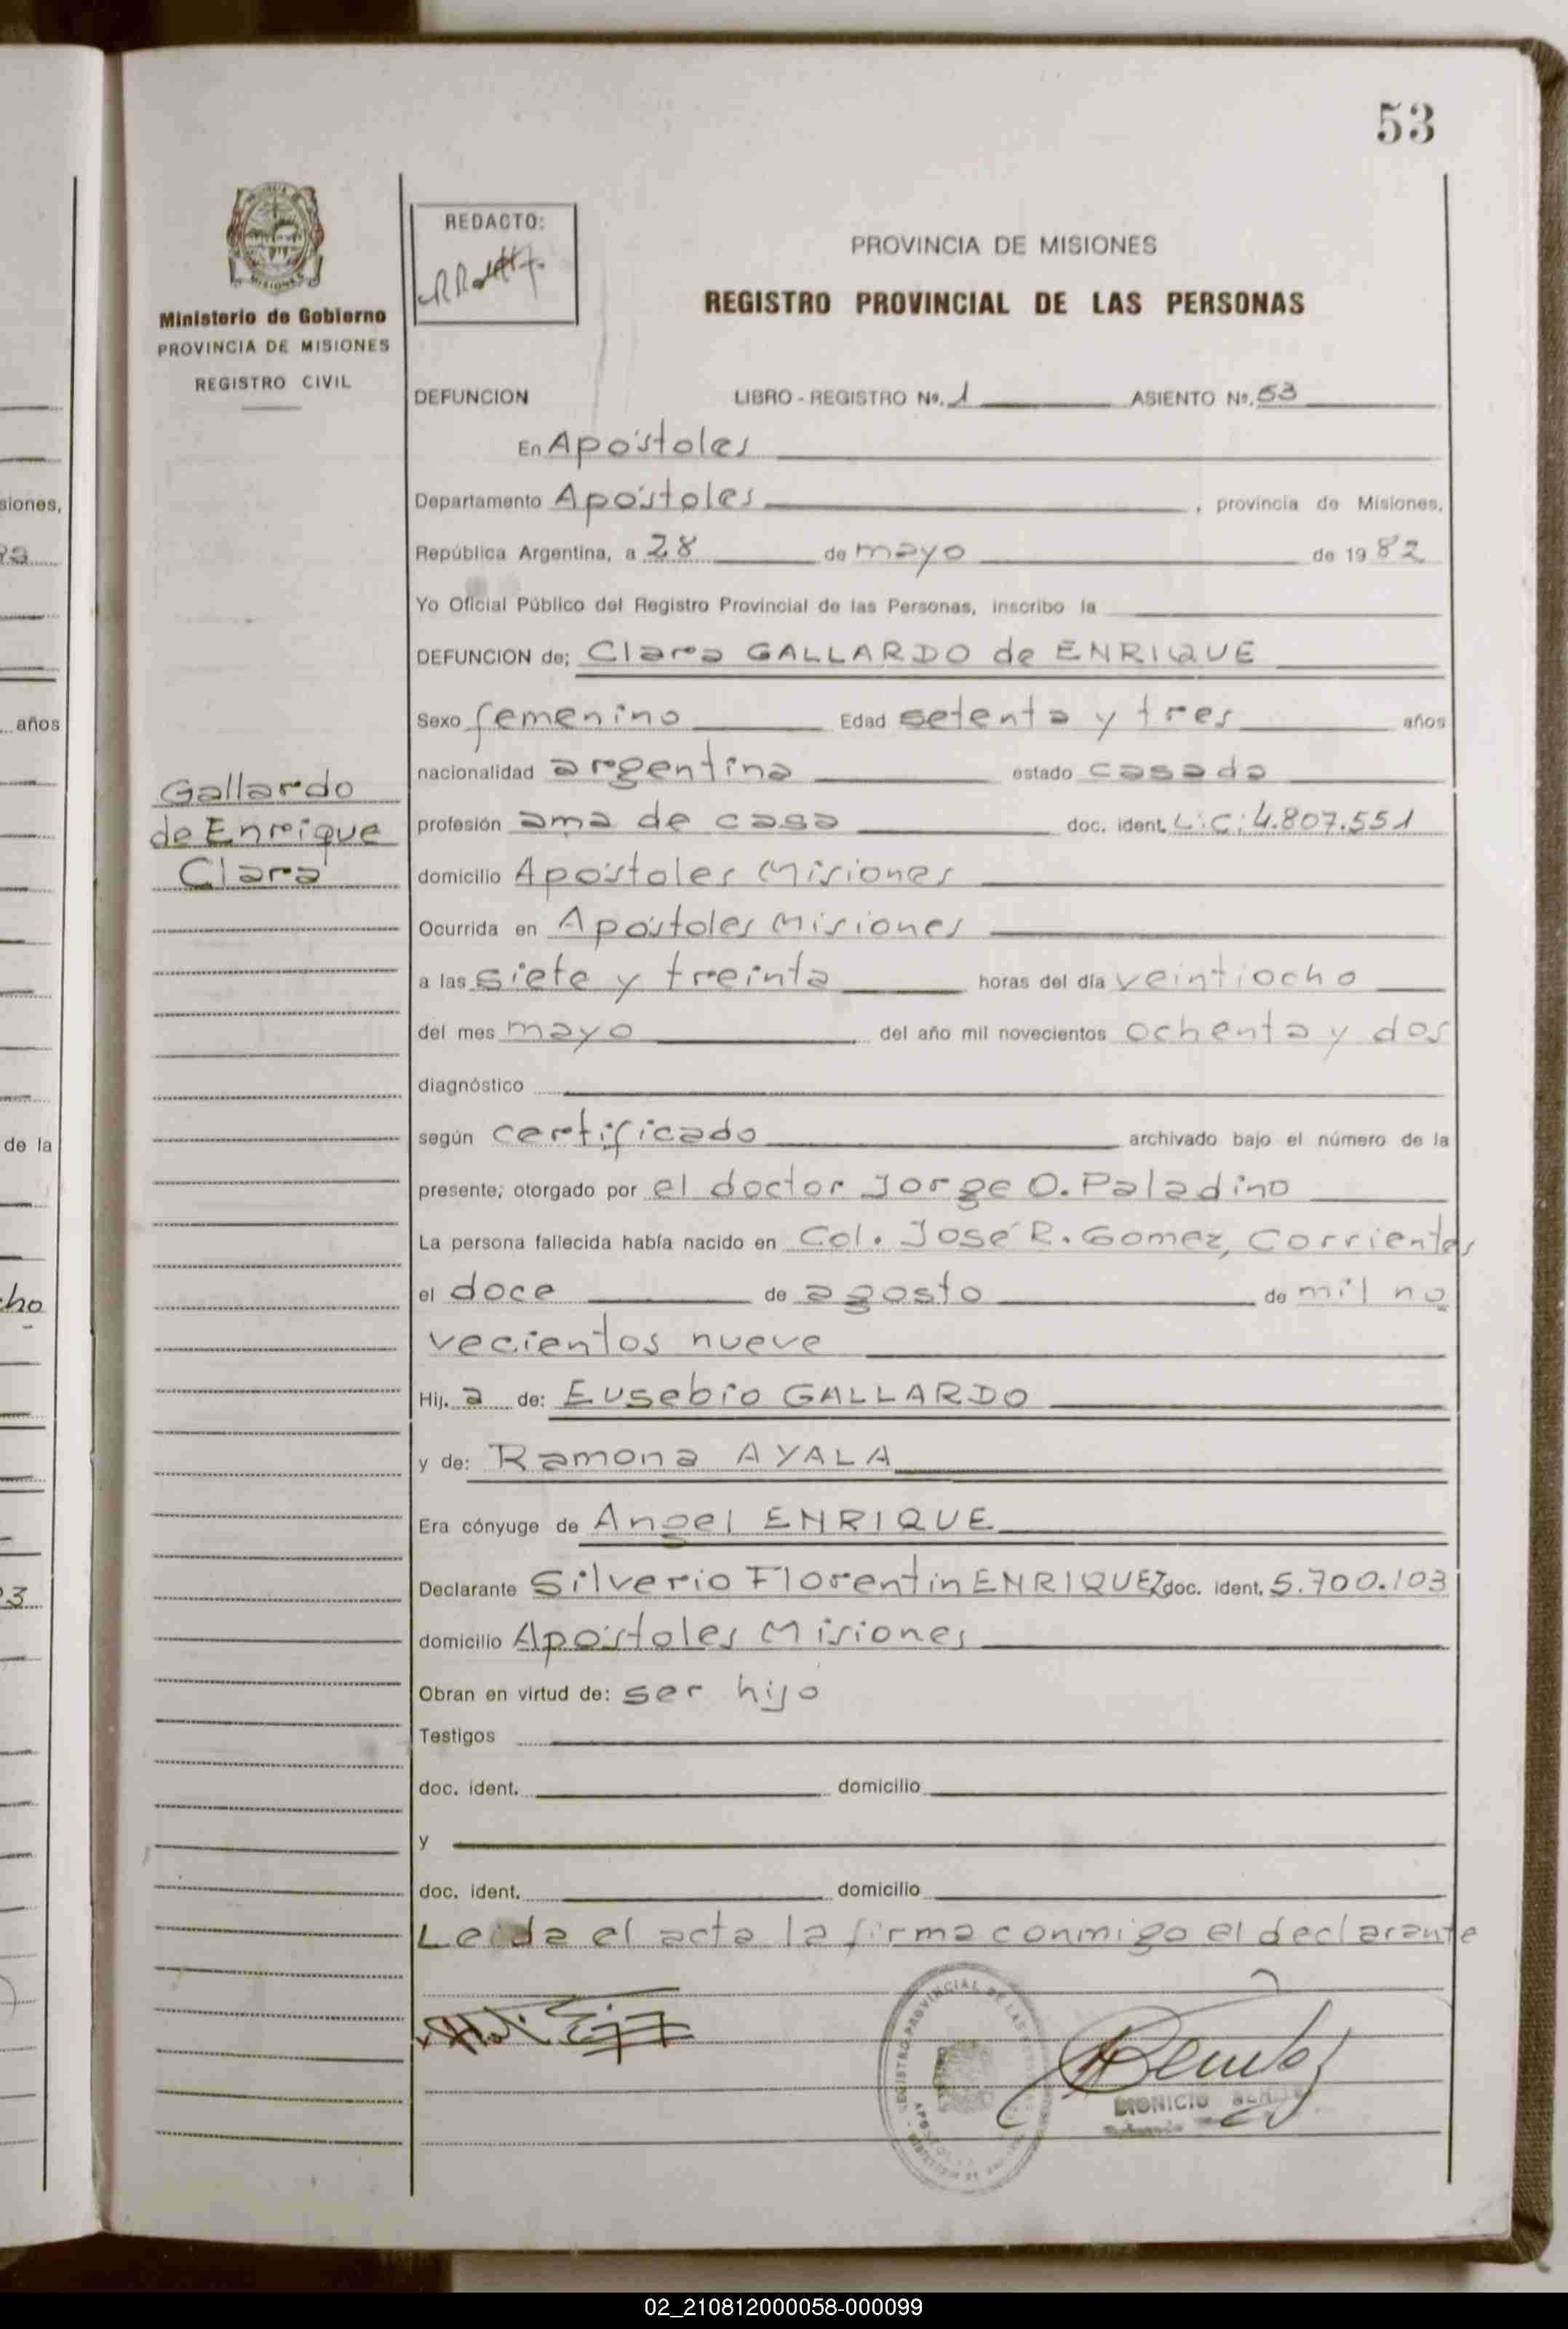 53
Ministerio de Gobierno
PROVINCIA DE MISIONES
REGISTRO CIVIL
REDACTO:
PROVINCIA DE MISIONES
REGISTRO PROVINCIAL DE LAS PERSONAS
DEFUNCION LIBRO - REGISTRO Nº. 1 ASIENTO Nº. 53
En Apóstoles
Departamento Apóstoles, provincia de Misiones,
República Argentina, a 28 de mayo de 1982
Yo Oficial Público del Registro Provincial de las Personas, inscribo la
DEFUNCION de: Clara GALLARDO de ENRIQUE
Sexo femenino Edad setenta y tres años
nacionalidad argentina estado casada
Gallardo
de Enrique
Clara
profesión ama de casa doc. ident. L.C: 4.807.551
domicilio Apóstoles Misiones
Ocurrida en Apóstoles Misiones
a las siete y treinta horas del día veintiocho
del mes mayo del año mil novecientos ochenta y dos
diagnóstico
según certificado archivado bajo el número de la
presente; otorgado por el doctor Jorge O. Paladino
La persona fallecida había nacido en Col. José R. Gomez, Corrientes
el doce de agosto de mil no
vecientos nueve
Hij. a de: Eusebio GALLARDO
y de: Ramona AYALA
Era cónyuge de Angel ENRIQUE
Declarante Silverio Florentin ENRIQUEZ doc. ident. 5.700.103
domicilio Apóstoles Misiones
Obran en virtud de: ser hijo
Testigos
doc. ident. domicilio
y
doc. ident. domicilio
Leida el acta la firma conmigo el declarante
DIONICIO
siones,
años
de la
cho
02_210812000058-000099